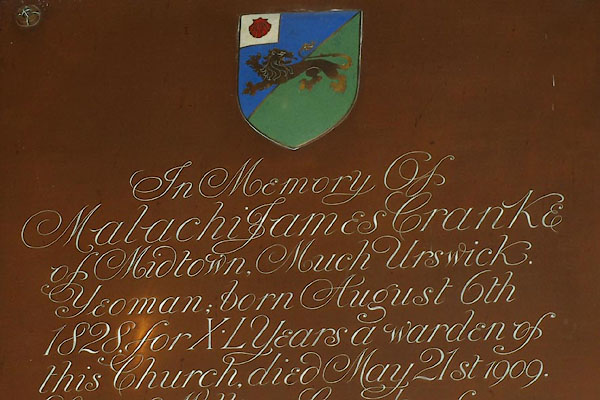 In Memory Of
Malachi James Cranke
of Midtown, Much Urswick.
Yeoman; born August 6th
1828, for X·L Years a warden of
this Church, died May 21st 1909.